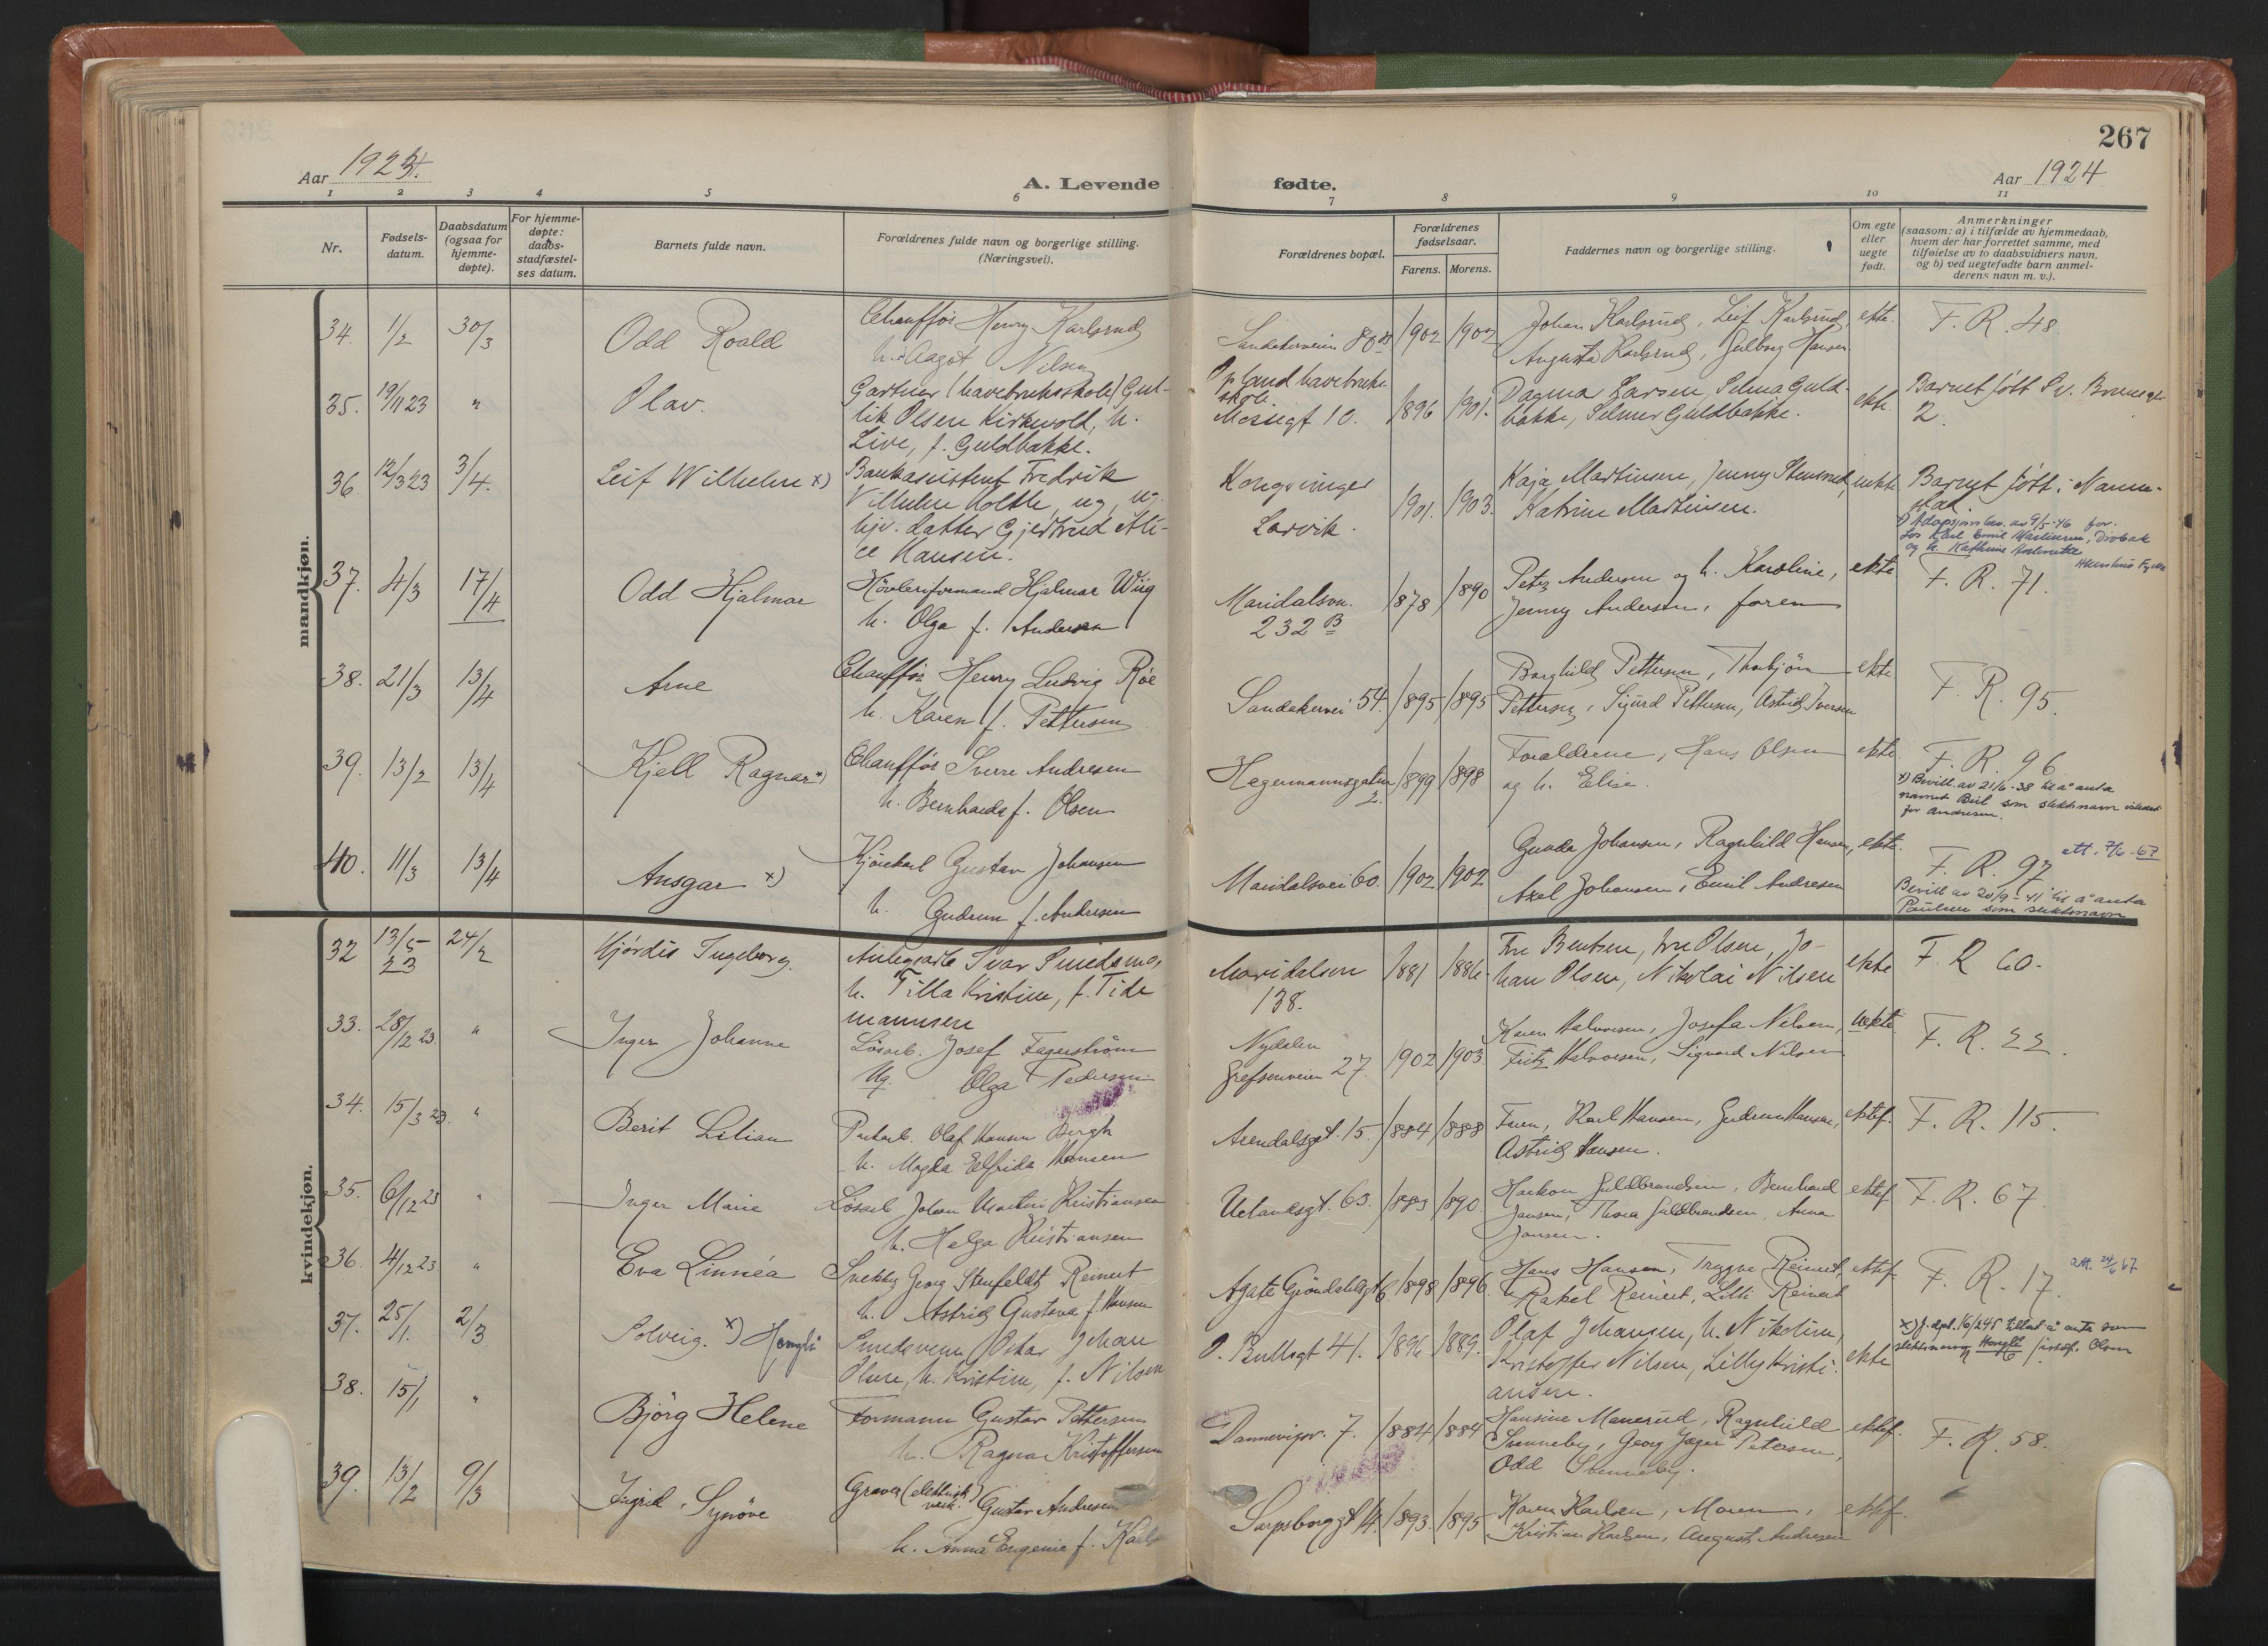 267
Aar 1924.
A. Levende
fødte.
Aar 1924
1 2 3 4 5 6 7 8 9 10 11
Nr.
Fødsels-
datum.
Daabsdatum
(ogsaa for
hjemme-
døpte).
For hjemme-
døpte:
daabs-
stadfæstel-
ses datum.
Barnets fulde navn.
Forældrenes fulde navn og borgerlige stilling.
(Næringsvei).
Forældrenes bopæl.
Forældrenes
fødselsaar.
Farens. Morens.
Faddernes navn og borgerlige stilling.
Om egte
eller
uegte
født.
Anmerkninger
(saasom: a) i tilfælde av hjemmedaab,
hvem der har forrettet samme, med
tilføielse av to daabsvidners navn,
og b) ved uegtefødte barn anmel-
derens navn m. v.).
mandkjøn.
34. 1/2 30/3 Odd Roald
Chauffør Henry Karlsrud
h. Aagot Nilsen
Sandakerveien 80 1902 1902
Johan Karlsrud, Leif Karlsrud,
Augusta Karlsrud, Hansen
ekte. F. R. 48.
35. 19/11 23 " Olav.
Gartner (havebruksskole) Gul-
lik Olsen Kirkevold, h.
Live, f. Guldbakke.
Opland havebruks
skole.
Mossegt 10. 1896 1901.
Dagma Larsen, Selma Guld-
bakke, Selmer Guldbakke.
ekte
Barnet født
2.
36 12/3 23 3/4. Leif Wilhelm x)
Bankassistent Fredrik
Vilhelm Holthe, ug, ug.
hjv. datter Gjertrud Ali-
ce Hansen.
Kongsvinger
Larvik. 1901. 1903.
Kaja Martinsen, Jenny Stensrud,
Katrine Martinsen.
uekte
Barnet født i
av 9/5-46 for
Karl Emil Martinsen, Drøbak
og h. Kathrine
37. 4/3 17/4 Odd Hjalmar
Høvleriformand Hjalmar Wiig
h. Olga f. Andersen
Maridalsvn.
232 B 1878 1890
Peter Andersen og h. Karoline,
Jenny Andersen,
ekte F. R. 71.
38. 21/3 13/4 Arne
Chauffør Henry Ludvig Røe
h. Karen f. Pettersen
Sandakervei 54. 1895 1895
Borghild Pettersen, Thorbjørn
Pettersen, Sigurd Pettersen, Astrid Iversen
ekte F. R. 95.
39. 13/2 13/4 Kjell Ragnar x)
Chauffør Sverre Andresen
h. Bernharda f. Olsen
Hegermannsgaten
2. 1899 1898
Foraldrene, Hans Olsen
og h. Elise.
ekte F. R. 96
x) Bevill. av 21/6-38 til å anta
navnet som slektsnavn istedet
for Andresen.
40. 11/3 13/4 Ansgar x)
Kjørekarl Gustav Johansen
h. Gudrun f. Andresen
Maridalsvei 60. 1902 1902
Gunda Johansen, Ragnhild Hansen,
Axel Johansen, Emil Andresen
ekte. F. R. 97 att. 7/6-67
Bevill av 20/9-41 til å anta
Paulsen som slektsnavn
kvindekjøn.
32 13/5 23 24/2 Hjørdis Ingeborg.
Ivar Smedsmo,
h. Tilla Kristine, f. Tide
mannsen
Maridalsvn
138. 1881 1886.
Fru Bentsen, fru Olsen, Jo-
han Olsen, Nikolai Nilsen
ekte F. R 60.
33. 28/12 23. " Inger Johanne
Løsarb. Josef Fagerstrøm
Ug. Olga Pedersen
Nydalen
Grefsenveien 27. 1902 1903
Karen Halvorsen, Josefa Nilsen,
Fritz Halvorsen, Sigvard Nilsen
Uekte F. R. 22.
34. 15/3 23. " Berit Lilian
Olaf Hansen Bergh
h. Magda Elfrida Hansen
Arendalsgt. 15. 1884 1888
Faren, Karl Hansen, Gudrun Hansen,
Astrid Hansen.
ektef. F. R. 115.
35. 6/12 23 " Inger Marie
Løsarb Johan Martin Kristiansen
h. Helga Kristiansen
Uelandsgt. 63. 1883 1890
Haakon Guldbrandsen, Bernhard
Jansen, Thora Guldbrandsen, Anna
Jansen.
ektef F. R. 67
36. 4/12 23. " Eva Linnéa
Georg Stenfeldt Reinert
h. Astrid Gustava f. Hansen
Agate Grøndahlsgt 6. 1898 1896
Hans Hansen, Trygve Reinert,
Rakel Reinert, Lilli Reinert
ektef F. R. 17.
37. 25/1. 2/3 Solveig. x) Hengli
Smedsvenn Oskar Johan
Olsen, h. Kristine, f. Nilsen
O. Bullsgt 41. 1896 1889.
Olaf Johansen, h. Nikoline,
Kristoffer Nilsen, Lilly Kristi-
ansen.
ekte
38. 15/1 " Bjørg Helene
Formann Gustav Pettersen
h. Ragna Kristoffersen
Dannevigsv. 7. 1884 1884
Hansine Manerud, Ragnhild
Sunneby, Georg Jæger Petersen,
Odd Sunneby.
ektef. F. R. 58.
39. 13/2 9/3 Ingrid Synøve
Graver (elektrisk
verk.) Gustav Andresen
h. Anna Eugenie f. Karls
Sarpsborggt 14. 1893. 1895
Karen Karlsen, Moren,
Kristian Karlsen, August Andresen
ektef.